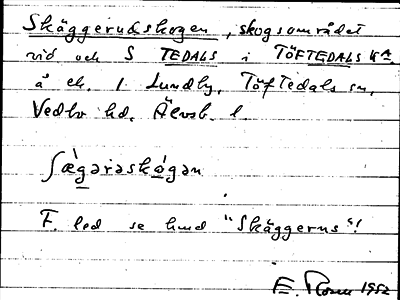 Skäggerudskogen, skogsområdet
vid och S TEDALS i TÖFTEDALS KA
å ek. 1 Lundby, Töftedals sn,
Vedbo hd. Älvsb. l.
ʃæ̀gərəskógən
F. led se hmd "Skäggerns"!
E. 1952